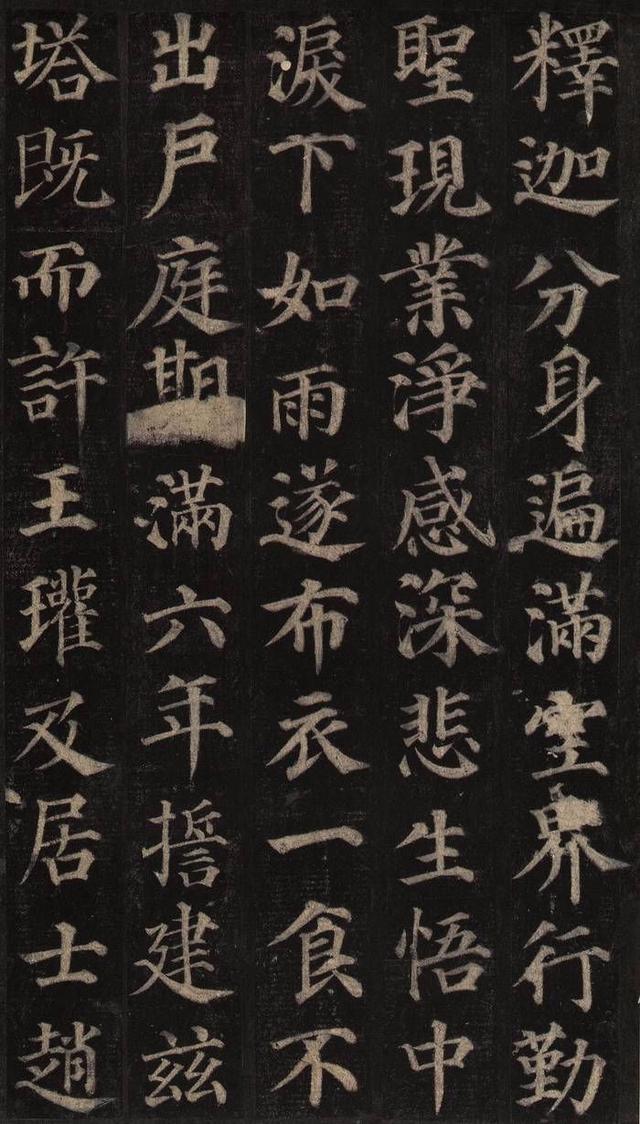 釋迦分身遍滿空界行勤
聖現業淨感深悲生悟中
淚下如雨遂布衣一食不
出戶庭期滿六年誓建茲
塔既而許王瓘及居士趙